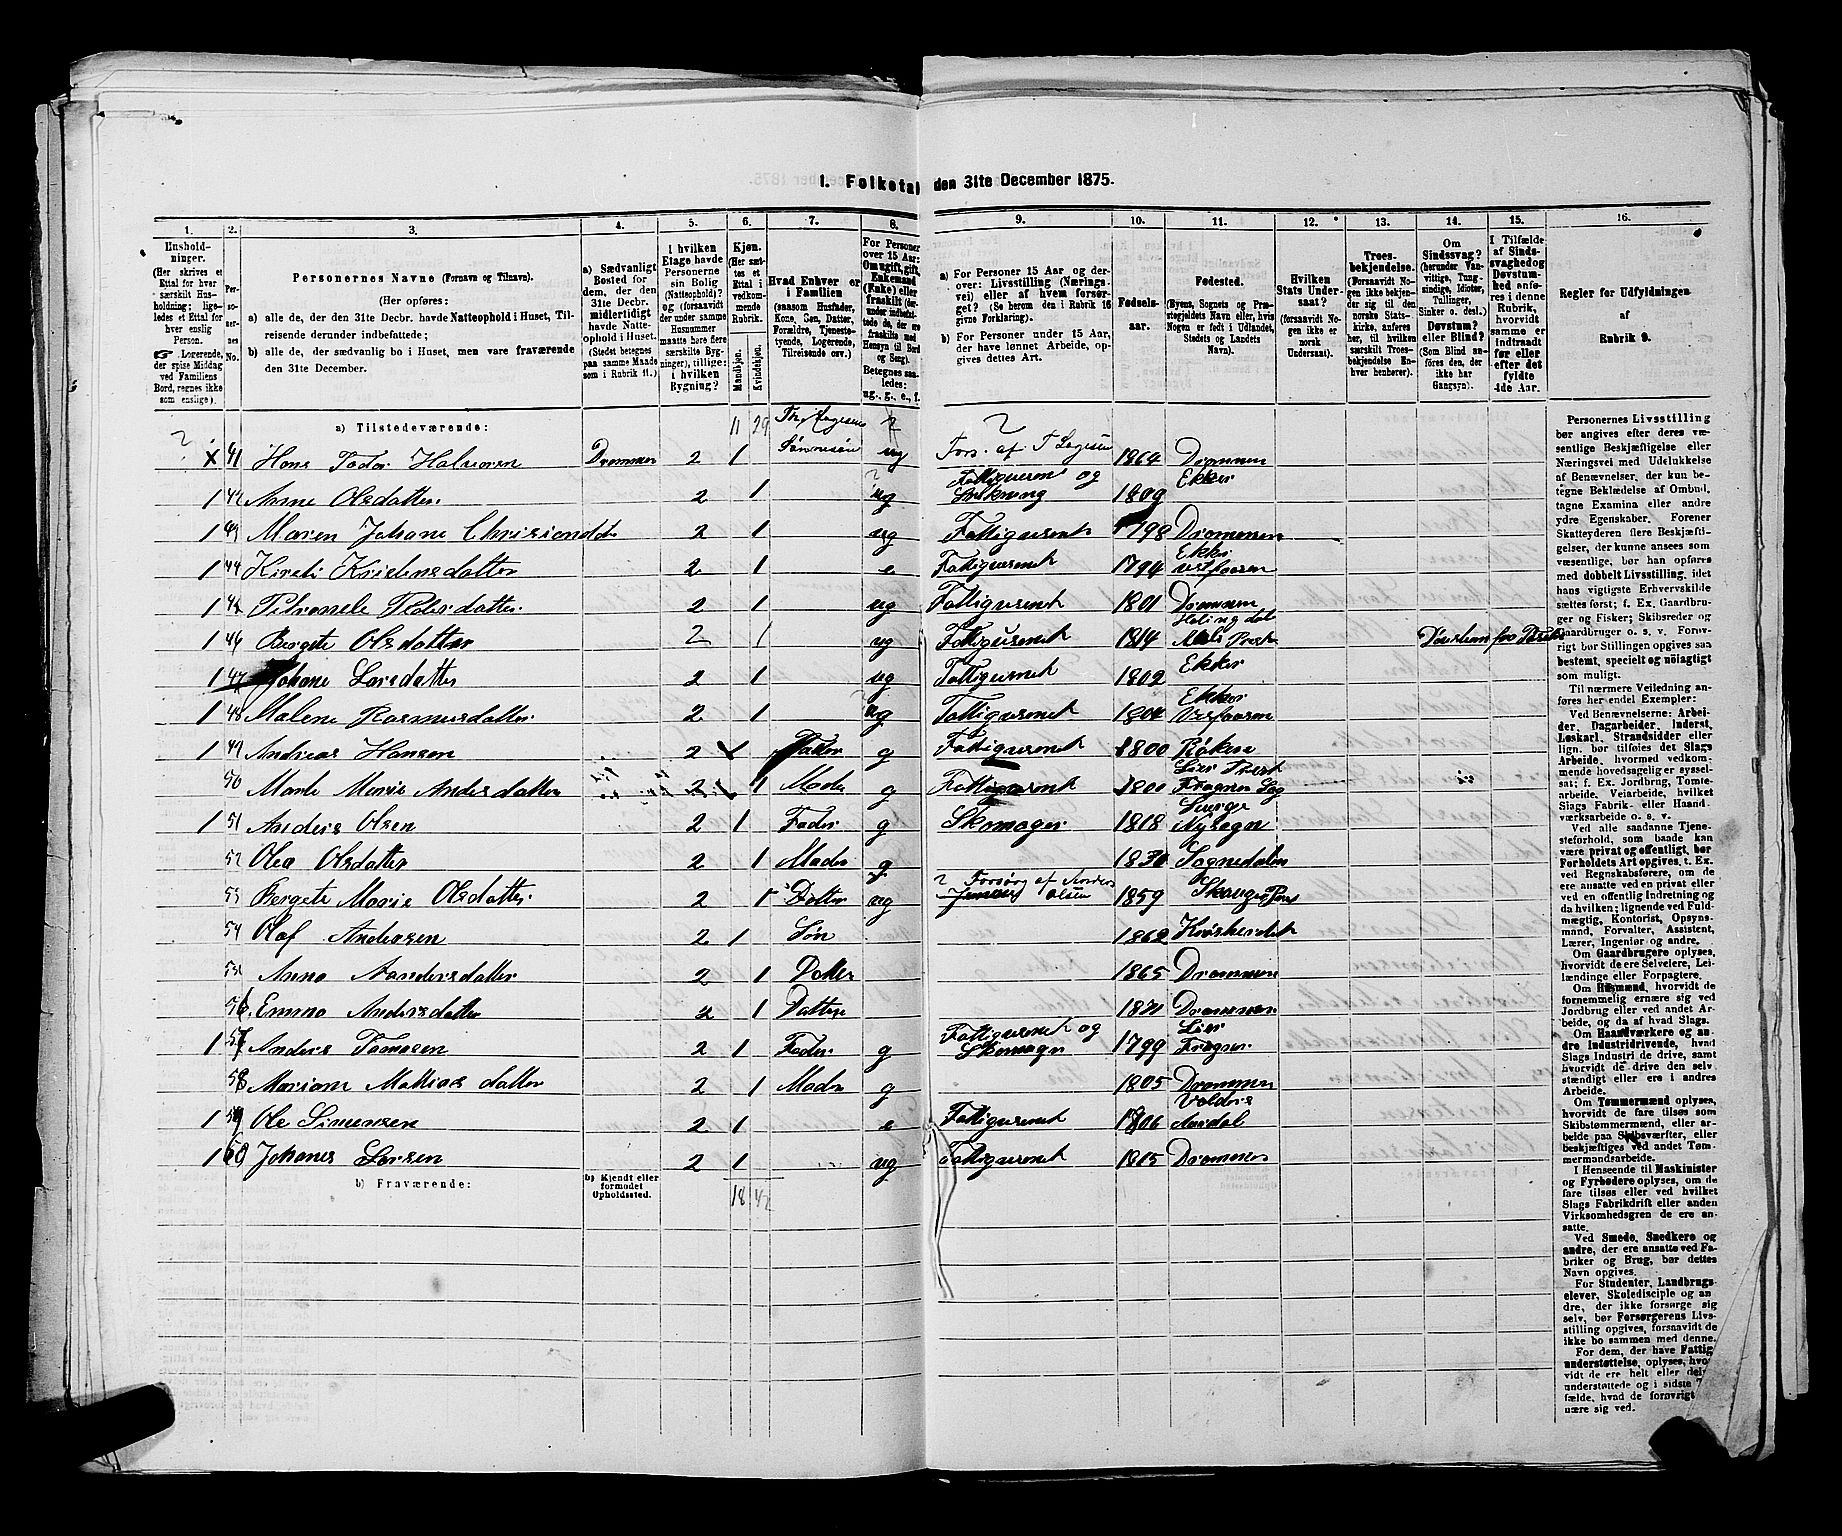 1. Folketal den 31te December 1875.
1. 2. 3. 4. 5. 6. 7. 8. 9. 10. 11. 12. 13. 14. 15. 16.
Enshold-
ninger.
(Her skrives et
Ettal for hver
særskilt Hus-
holdning; lige-
ledes et Ettal for
hver enslig
Person.
☞ Logerende,
der spise Middag
ved Familiens
Bord, regnes ikke
som enslige).
Per-
soner-
nes
No.
Personernes Navne (Fornavn og Tilnavn).
(Her opføres:
a) alle de, der den 31te Decbr. havde Natteophold i Huset, Til-
reisende derunder indbefattede;
b) alle de, der sædvanlig bo i Huset, men vare fraværende
den 31te December.
a) Sædvanligt
Bosted for
dem, der den
31te Decbr.
midlertidigt
havde Natte-
ophold i Huset.
(Stedet betegnes
paa samme Maade
som i Rubrik 11.)
I hvilken
Etage havde
Personerne
sin Bolig
(Natteophold)?
og (forsaavidt
der under samme
Husnummer
maatte høre flere
særskilte Byg-
ninger), tillige:
i hvilken
Bygning?
Kjøn.
(Her sæt-
tes et
Ettal i
vedkom-
mende
Rubrik.
Mandkjøn.
Kvindekjøn.
Hvad Enhver er
i Familien
(saasom Husfader,
Kone, Søn, Datter,
Forældre, Tjeneste-
tyende, Logerende,
Tilreisende osv.)
For Personer
over 15 Aar:
Om ugift, gift,
Enkemand
(Enke) eller
fraskilt (der-
under indbefat-
tede de, der ere
fraskilte med
Hensyn til Bord
og Seng).
Betegnes saa-
ledes:
ug., g., e., f.
a) For Personer 15 Aar og der-
over: Livsstilling (Nærings-
vei) eller af hvem forsør-
get? (Se herom den i Rubrik 16
givne Forklaring).
b) For Personer under 15 Aar,
der have lønnet Arbeide, op-
gives dettes Art.
Fødsels-
aar.
Fødested.
(Byens, Sognets og Præ-
stegjeldets Navn eller, hvis
Nogen er født i Udlandet,
Stedets og Landets
Navn).
Hvilken
Stats Under-
saat?
(forsaavidt No-
gen ikke er
norsk
Undersaat).
Troes-
bekjendelse.
(Forsaavidt No-
gen ikke bekjen-
der sig til den
norske Stats-
kirke, anføres
her, til hvilken
særskilt Troes-
bekjendelse En-
hver henhører).
Om
Sindssvag?
(herunder Van-
vittige, Tung-
sindige, Idioter,
Tullinger,
Sinker o. desl.)
Døvstum?
eller Blind?
(Som Blind an-
føres den, der
ikke har
Gangsyn).
I Tilfælde
af Sinds-
svaghed og
Døvstum-
hed anfø-
res i denne
Rubrik,
hvorvidt
samme er
indtraadt
før eller
efter det
fyldte
4de Aar.
Regler for Udfyldningen
af
Rubrik 9.
a) Tilstedeværende: 11 29
X 41 Hans Teodor Halvorsen Drammen 2 1 Sønnesøn ug Fors. af T Lagesen 1864 Drammen
1 42 Anne Olsdatter 2 1 ug Fattigvesenet og Strikning 1809 Eker
1 43 Maren Johane Chrisiansdt 2 1 ug Fattigvesenet 1798 Drammen
1 44 Kirsti Kristensdatter 2 1 e Fattigvesenet 1794 Eker Vestfossen
1 45 Petronele Pedersdatter 2 1 ug Fattigvesenet 1801 Drammen
1 46 Bergete Olsdatter 2 1 ug Fattigvesenet 1814 Halingdal Døvstum
1 47 Johane Larsdatter 2 1 ug Fattigvesenet 1802 Eker
1 48 Malene Rasmusdatter 2 1 ug Fattigvesenet 1804 Eker Vesfossen
1 49 Andreas Hansen 2 Fader g Fattigvesenet 1800 Røken
50 Marte Marie Andersdatter 2 1 Moder g Fattigvesenet 1800 Lier Frogner Sog
1 51 Anders Olsen 2 1 Fader g Skomager 1818
52 Olea Olsdatter 2 1 Moder g 1830 Sognedalen
53 Bergete Marie Olsdatter 2 1 Datter ug ? Forsørg af Anders Olsen 1859
54 Olaf Andersen 2 1 Søn 1862
55 Anna Aandersdatter 2 1 Datter 1865 Drammen
56 Emma Andersdatter 2 1 Datter 1871 Drammen
1 57 Anders Tomasen 2 1 Fader g Fattigvesenet og Skomager 1799 Lier Frogner
58 Mariane Mathias datter 2 1 Moder g 1805 Drammen
1 59 Ole Simensen 2 1 e Fattigvesenet 1806 Valders Aurdal
1 60 Johanes Larsen 2 1 ug Fattigvesenet 1815 Drammen
b) Fraværende:
b) Kjendt eller
formodet
Opholdssted.
18 42
Personernes Livsstilling
bør angives efter deres væ-
sentlige Beskjæftigelse eller
Næringsvei med Udelukkelse
af Benævnelser, der kun be-
tegne Beklædelse af Ombud,
tagne Examina eller andre
ydre Egenskaber. Forener
Skatteyderen flere Beskjæfti-
gelser, der kunne ansees som
væsentlige, bør han opføres
med dobbelt Livsstilling, idet
hans vigtigste Erhvervskilde
sættes først; f. Ex. Gaardbru-
ger og Fisker; Skibsreder og
Gaardbruger o. s. v. Forøv-
rigt bør Stillingen opgives saa
bestemt, specielt og nøiagtigt
som muligt.
Til nærmere Veiledning an-
føres her endel Exempler:
Ved Benævnelserne: Arbei-
der, Dagarbeider, Inderst,
Løskarl, Strandsidder eller
lign. bør tilføies det Slags
Arbeide, hvormed vedkom-
mende hovedsagelig er syssel-
sat; f. Ex. Jordbrug, Tomte-
arbeide, Veiarbeide, hvilket
Slags Fabrik- eller Haand-
værksarbeide o. s. v.
Ved alle saadanne Tjene-
steforhold, som baade kan
være privat og offentligt, bør
Forholdets Art opgives, t. Ex.
ved Regnskabsførere, om de
ere ansatte ved en privat eller
ved en offentlig Indretning og
da hvilken; lignende ved Fuld-
mægtig, Kontorist, Opsyns-
mand, Forvalter, Assistent,
Lærer, Ingeniør og andre.
Om Gaardbrugere oplyses,
hvorvidt de ere Selveiere, Lei-
lændinge eller Forpagtere.
Om Husmænd, hvorvidt de
fornemmelig ernære sig ved
Jordbrug eller ved andet Ar-
beide, og da af hvad Slags.
Om Haandværkere og an-
dre Industridrivende, hvad
Slags Industri de drive, samt
hvorvidt de drive den selv-
stændigt eller ere i andres
Arbeide.
Om Tømmermænd oplyses,
hvorvidt de fare tilsøs som
Skibstømmermænd, eller ar-
beide paa Skibsværfter, eller
beskjæftiges ved andet Tøm-
mermandsarbeide.
I Henseende til Maskinister
og Fyrbødere oplyses, om de
fare tilsøs eller ved hvilket
Slags Fabrikdrift eller anden
Virksomhedsgren de ere an-
satte.
Ved Smede, Snedkere og
andre, der ere ansatte ved Fa-
briker og Brug, bør dettes
Navn opgives.
For Studenter, Landbrugs-
elever, Skoledisciple og an-
dre, der ikke forsørge sig
selv, bør Forsørgerens Livs-
stilling opgives, forsaavidt de
ikke bo sammen med denne.
For dem, der have Fattig-
understøttelse, oplyses, hvor-
vidt de ere helt eller del
understøttede og i sidste
fælde, hvad de forøvrigt
nære sig ved.